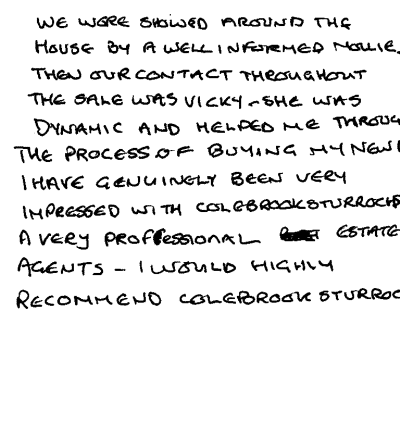 WE WERE SHOWED AROUND THE
HOUSE BY A WELL INFORMED MOLLIE.
THEN OUR CONTACT THROUGHOUT
THE SALE WAS VICKY - SHE WAS
DYNAMIC AND HELPED ME THROUG
THE PROCESS OF BUYING MY NEW
I HAVE GENUINELY BEEN VERY
IMPRESSED WITH COLEBROOKSTURROCKS
A VERY PROFFESSIONAL ESTATE
AGENTS - I WOULD HIGHLY
RECOMMEND COLEBROOK STURROC